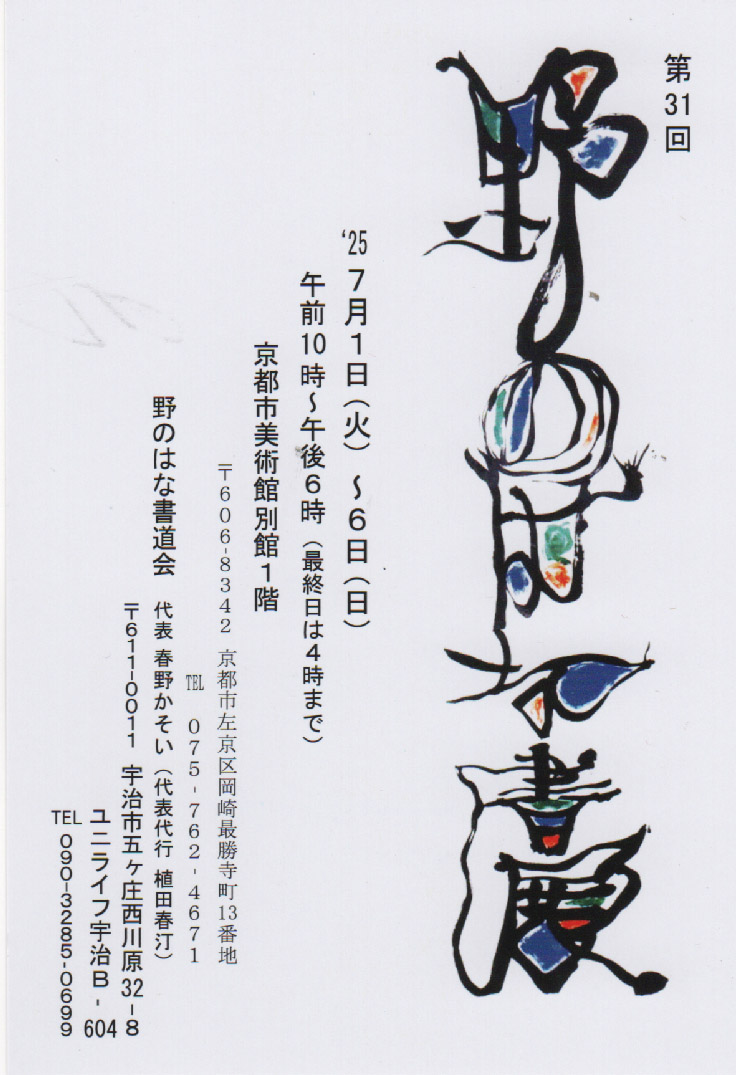 第31回
野のはな書展
'25 7月1日（火）～6日（日）
午前10時～午後6時（最終日は4時まで）
京都市美術館別館1階
〒606-8342 京都市左京区岡崎最勝寺町13番地
TEL 075-762-4671
野のはな書道会 代表 春野かそい（代表代行 植田春汀）
〒611-0011 宇治市五ヶ庄西川原32-8
ユニライフ宇治B-604
TEL 090-3285-0699